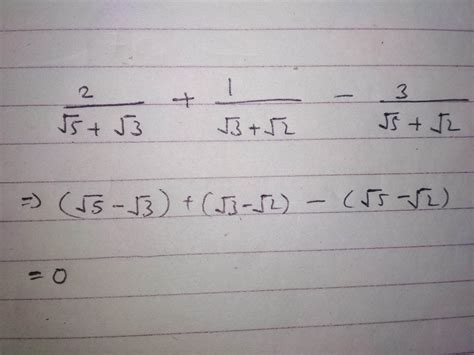 2/(√5 + √3) + 1/(√3 + √2) - 3/(√5 + √2)
=> (√5 - √3) + (√3 - √2) - (√5 - √2)
= 0